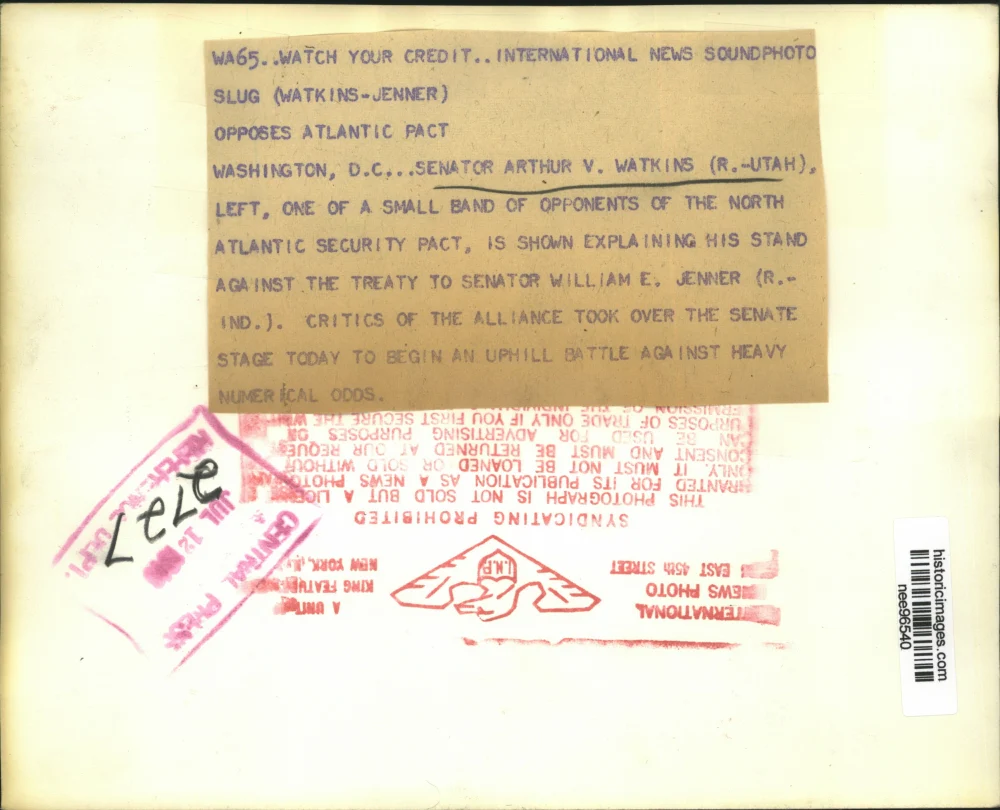 WA65..WATCH YOUR CREDIT..INTERNATIONAL NEWS SOUNDPHOTO
SLUG (WATKINS-JENNER)
OPPOSES ATLANTIC PACT
WASHINGTON, D.C...SENATOR ARTHUR V. WATKINS (R.-UTAH),
LEFT, ONE OF A SMALL BAND OF OPPONENTS OF THE NORTH
ATLANTIC SECURITY PACT, IS SHOWN EXPLAINING HIS STAND
AGAINST THE TREATY TO SENATOR WILLIAM E. JENNER (R.-
IND.). CRITICS OF THE ALLIANCE TOOK OVER THE SENATE
STAGE TODAY TO BEGIN AN UPHILL BATTLE AGAINST HEAVY
NUMERICAL ODDS.
INTERNATIONAL
NEWS PHOTO
EAST 45th STREET
I.N.P.
A UNIT
KING FEATURE
NEW YORK, N.Y.
SYNDICATING PROHIBITED
THIS PHOTOGRAPH IS NOT SOLD BUT A LICE
GRANTED FOR ITS PUBLICATION AS A NEWS PHOTO
ONLY. IT MUST NOT BE LOANED OR SOLD WITHOUT
CONSENT AND MUST BE RETURNED AT OUR REQUES
CAN BE USED FOR ADVERTISING PURPOSES OR
PURPOSES OF TRADE ONLY IF YOU FIRST SECURE THE
CENTRAL PRESS
JUL 12
REFERENCE DEPT.
2727
historicimages.com
nee96540